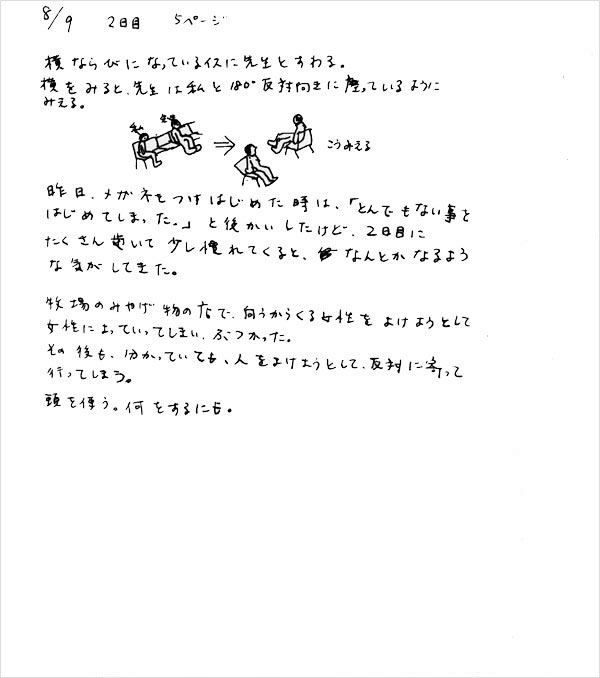 8/9 2日目 5ページ
横ならびになっているイスに先生とすわる。
横をみると、先生は私と180°反対向きに座っているように
みえる。
私 先生
⇒ こうみえる
昨日、メガネをつけはじめた時は、「とんでもない事を
はじめてしまった。」と後かいしたけど、2日目に
たくさん歩いて少し慣れてくると、なんとかなるよう
な気がしてきた。
牧場のみやげ物の店で、向うからくる女性をよけようとして
女性によっていってしまい、ぶつかった。
その後も、分かっていても、人をよけようとして、反対に寄って
行ってしまう。
頭を使う。何をするにも。